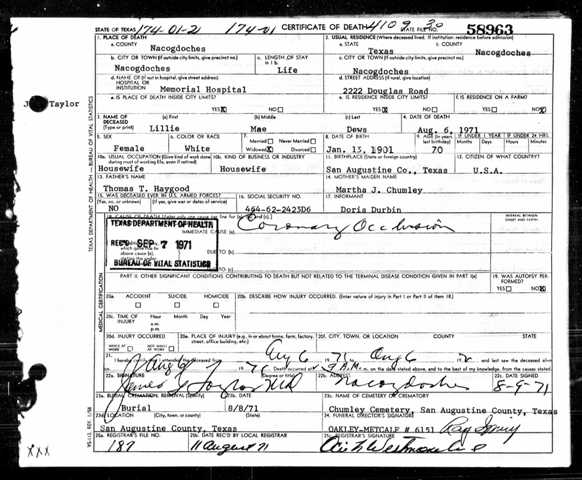 STATE OF TEXAS 174-01-2 174-01 CERTIFICATE OF DEATH 4109 30 STATE FILE NO. 58963
1. PLACE OF DEATH
a. COUNTY
Nacogdoches
2. USUAL RESIDENCE (Where deceased lived. If institution: residence before admission)
a. STATE
Texas
b. COUNTY
Nacogdoches
b. CITY OR TOWN (If outside city limits, give precinct no.)
Nacogdoches
c. LENGTH OF STAY
Life
c. CITY OR TOWN (If outside city limits, give precinct no.)
Nacogdoches
d. NAME OF (If not in hospital, give street address)
HOSPITAL OR
INSTITUTION
Memorial Hospital
d. STREET ADDRESS (If rural, give location)
2222 Douglas Road
e. IS PLACE OF DEATH INSIDE CITY LIMITS?
YES NO
e. IS RESIDENCE INSIDE CITY LIMITS?
YES NO
f. IS RESIDENCE ON A FARM?
YES NO
Taylor
3. NAME OF
DECEASED
(Type or print)
(a) First
Lillie
(b) Middle
Mae
(c) Last
Dews
4. DATE OF DEATH
Aug. 6, 1971
5. SEX
Female
6. COLOR OR RACE
White
7. Married Never Married
Widowed Divorced
8. DATE OF BIRTH
Jan. 13, 1901
9. AGE (In years last birthday)
70
IF UNDER 1 YEAR
Months Days
IF UNDER 24 HRS.
Hours Min.
10a. USUAL OCCUPATION (Give kind of work done during most of working life, even if retired)
Housewife
10b. KIND OF BUSINESS OR INDUSTRY
Housewife
11. BIRTHPLACE (State or foreign country)
San Augustine Co., Texas
12. CITIZEN OF WHAT COUNTRY?
U.S.A.
13. FATHER'S NAME
Thomas T. Haygood
14. MOTHER'S MAIDEN NAME
Martha J. Chumley
15. WAS DECEASED EVER IN U.S. ARMED FORCES?
(Yes, no, or unknown) (If yes, give war or dates of service)
NO
16. SOCIAL SECURITY NO.
464-62-2423D6
17. INFORMANT
Doris Durbin
18. CAUSE OF DEATH
INTERVAL BETWEEN
ONSET AND DEATH
TEXAS DEPARTMENT OF HEALTH
REC'D SEP 7 1971
BUREAU OF VITAL STATISTICS
IMMEDIATE CAUSE (a)
Coronary Occlusion
DUE TO (b)
DUE TO (c)
PART II. OTHER SIGNIFICANT CONDITIONS CONTRIBUTING TO DEATH BUT NOT RELATED TO THE TERMINAL DISEASE CONDITION GIVEN IN PART I(a)
19. WAS AUTOPSY PERFORMED?
YES NO
20a. ACCIDENT SUICIDE HOMICIDE
20b. DESCRIBE HOW INJURY OCCURRED. (Enter nature of injury in Part I or Part II of item 18.)
20c. TIME OF
INJURY
Hour Month Day Year
20d. INJURY OCCURRED
WHILE AT WORK NOT WHILE AT WORK
20e. PLACE OF INJURY (e.g., in or about home, farm, factory, street, office building, etc.)
20f. CITY, TOWN, OR LOCATION
COUNTY
STATE
21. I hereby certify that I attended the deceased from
Aug 6 71 Aug 6
and last saw the deceased alive
on the date stated above, and to the best of my knowledge, from the causes stated.
22a. SIGNATURE
(Degree or title)
James Taylor MD
22b. ADDRESS
Nacogdoches
22c. DATE SIGNED
8-9-71
23a. BURIAL, CREMATION, REMOVAL (Specify)
Burial
23b. DATE
8/8/71
23c. NAME OF CEMETERY OR CREMATORY
Chumley Cemetery, San Augustine County, Texas
23d. LOCATION (City, town, or county) (State)
San Augustine County, Texas
24. FUNERAL DIRECTOR'S SIGNATURE
OAKLEY-METCALF # 6151
25a. REGISTRAR'S FILE NO.
187
25b. DATE REC'D BY LOCAL REGISTRAR
11 August 71
25c. REGISTRAR'S SIGNATURE
TEXAS DEPARTMENT OF HEALTH — BUREAU OF VITAL STATISTICS
MEDICAL CERTIFICATION
VS-112, REV. 1/58
XXX